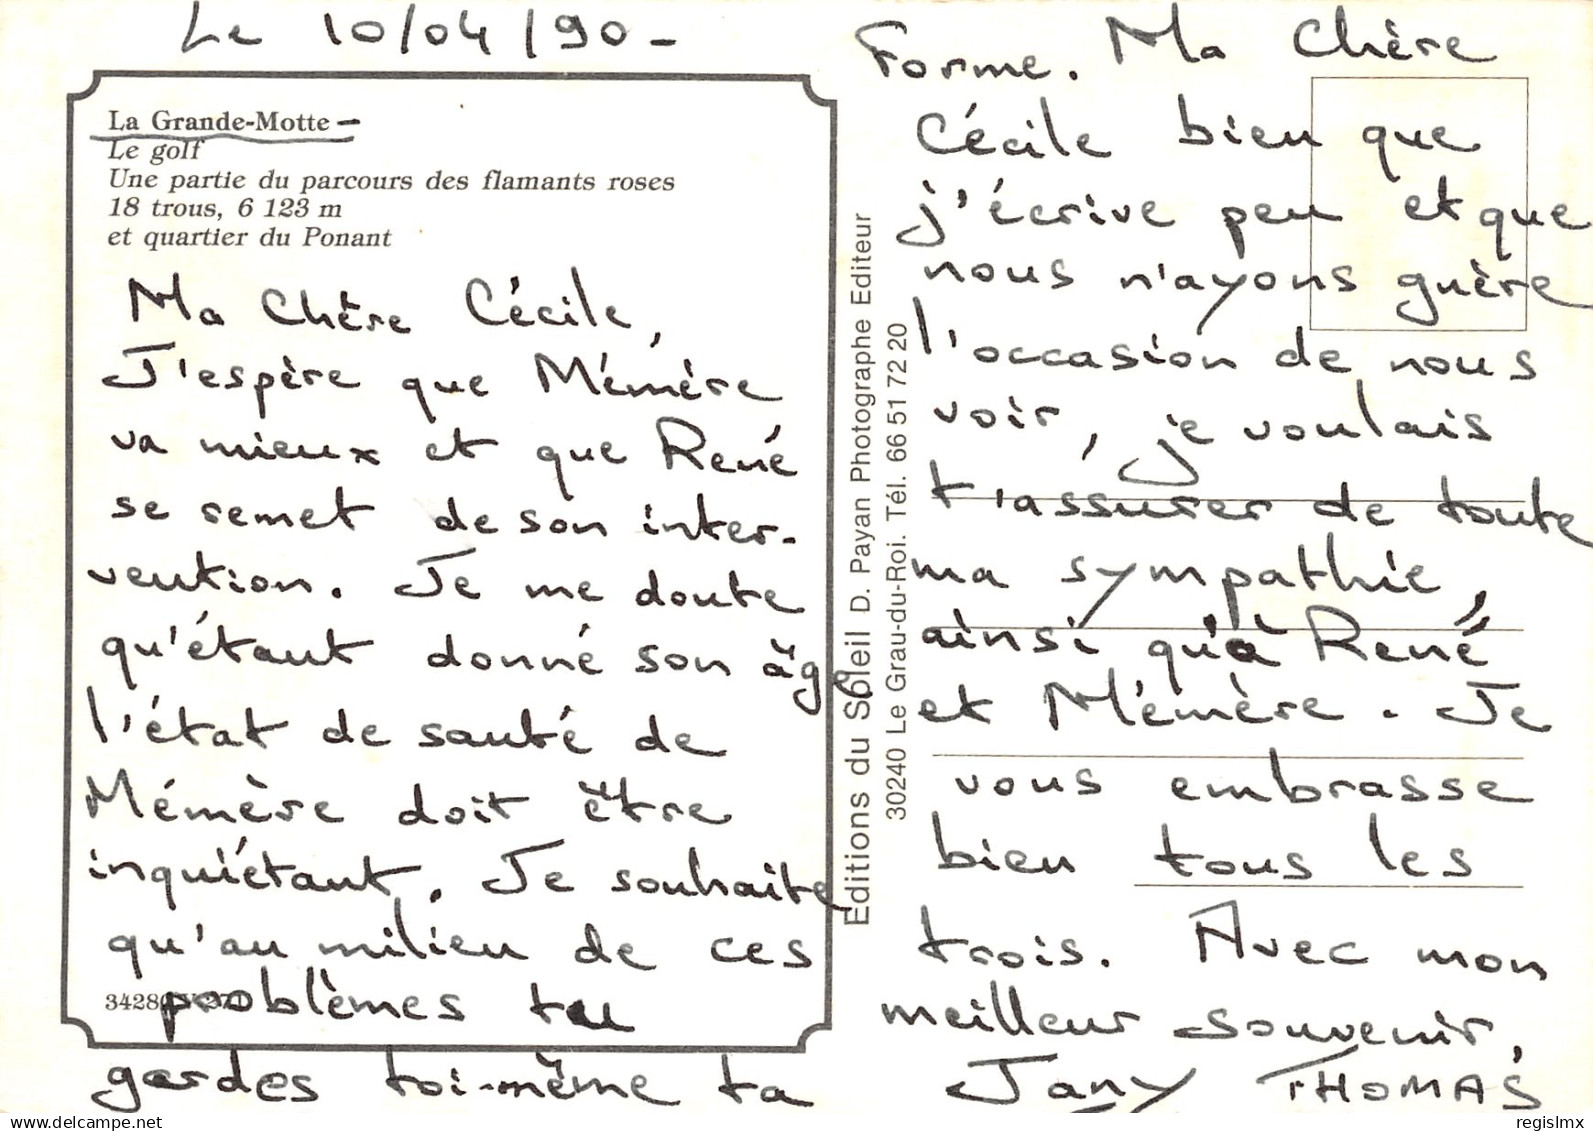 Le 10/04/90-
La Grande-Motte
Le golf
Une partie du parcours des flamants roses
18 trous, 6 123 m
et quartier du Ponant
Ma Chère Cécile,
J'espère que Mémère
va mieux et que René
se remet de son inter-
vention. Je me doute
qu'étant donné son âge
l'état de santé de
Mémère doit être
inquiétant. Je souhaite
qu'au milieu de ces
problèmes tu
gardes toi-même ta
Editions du Soleil D. Payan Photographe Editeur
30240 Le Grau-du-Roi. Tél. 66 51 72 20
Forme. Ma Chère
Cécile bien que
j'écrive peu et que
nous n'ayons guère
l'occasion de nous
voir, je voulais
t'assurer de toute
ma sympathie,
ainsi qu'à René
et Mémère. Je
vous embrasse
bien tous les
trois. Avec mon
meilleur souvenir,
Jany THOMAS
regislmx